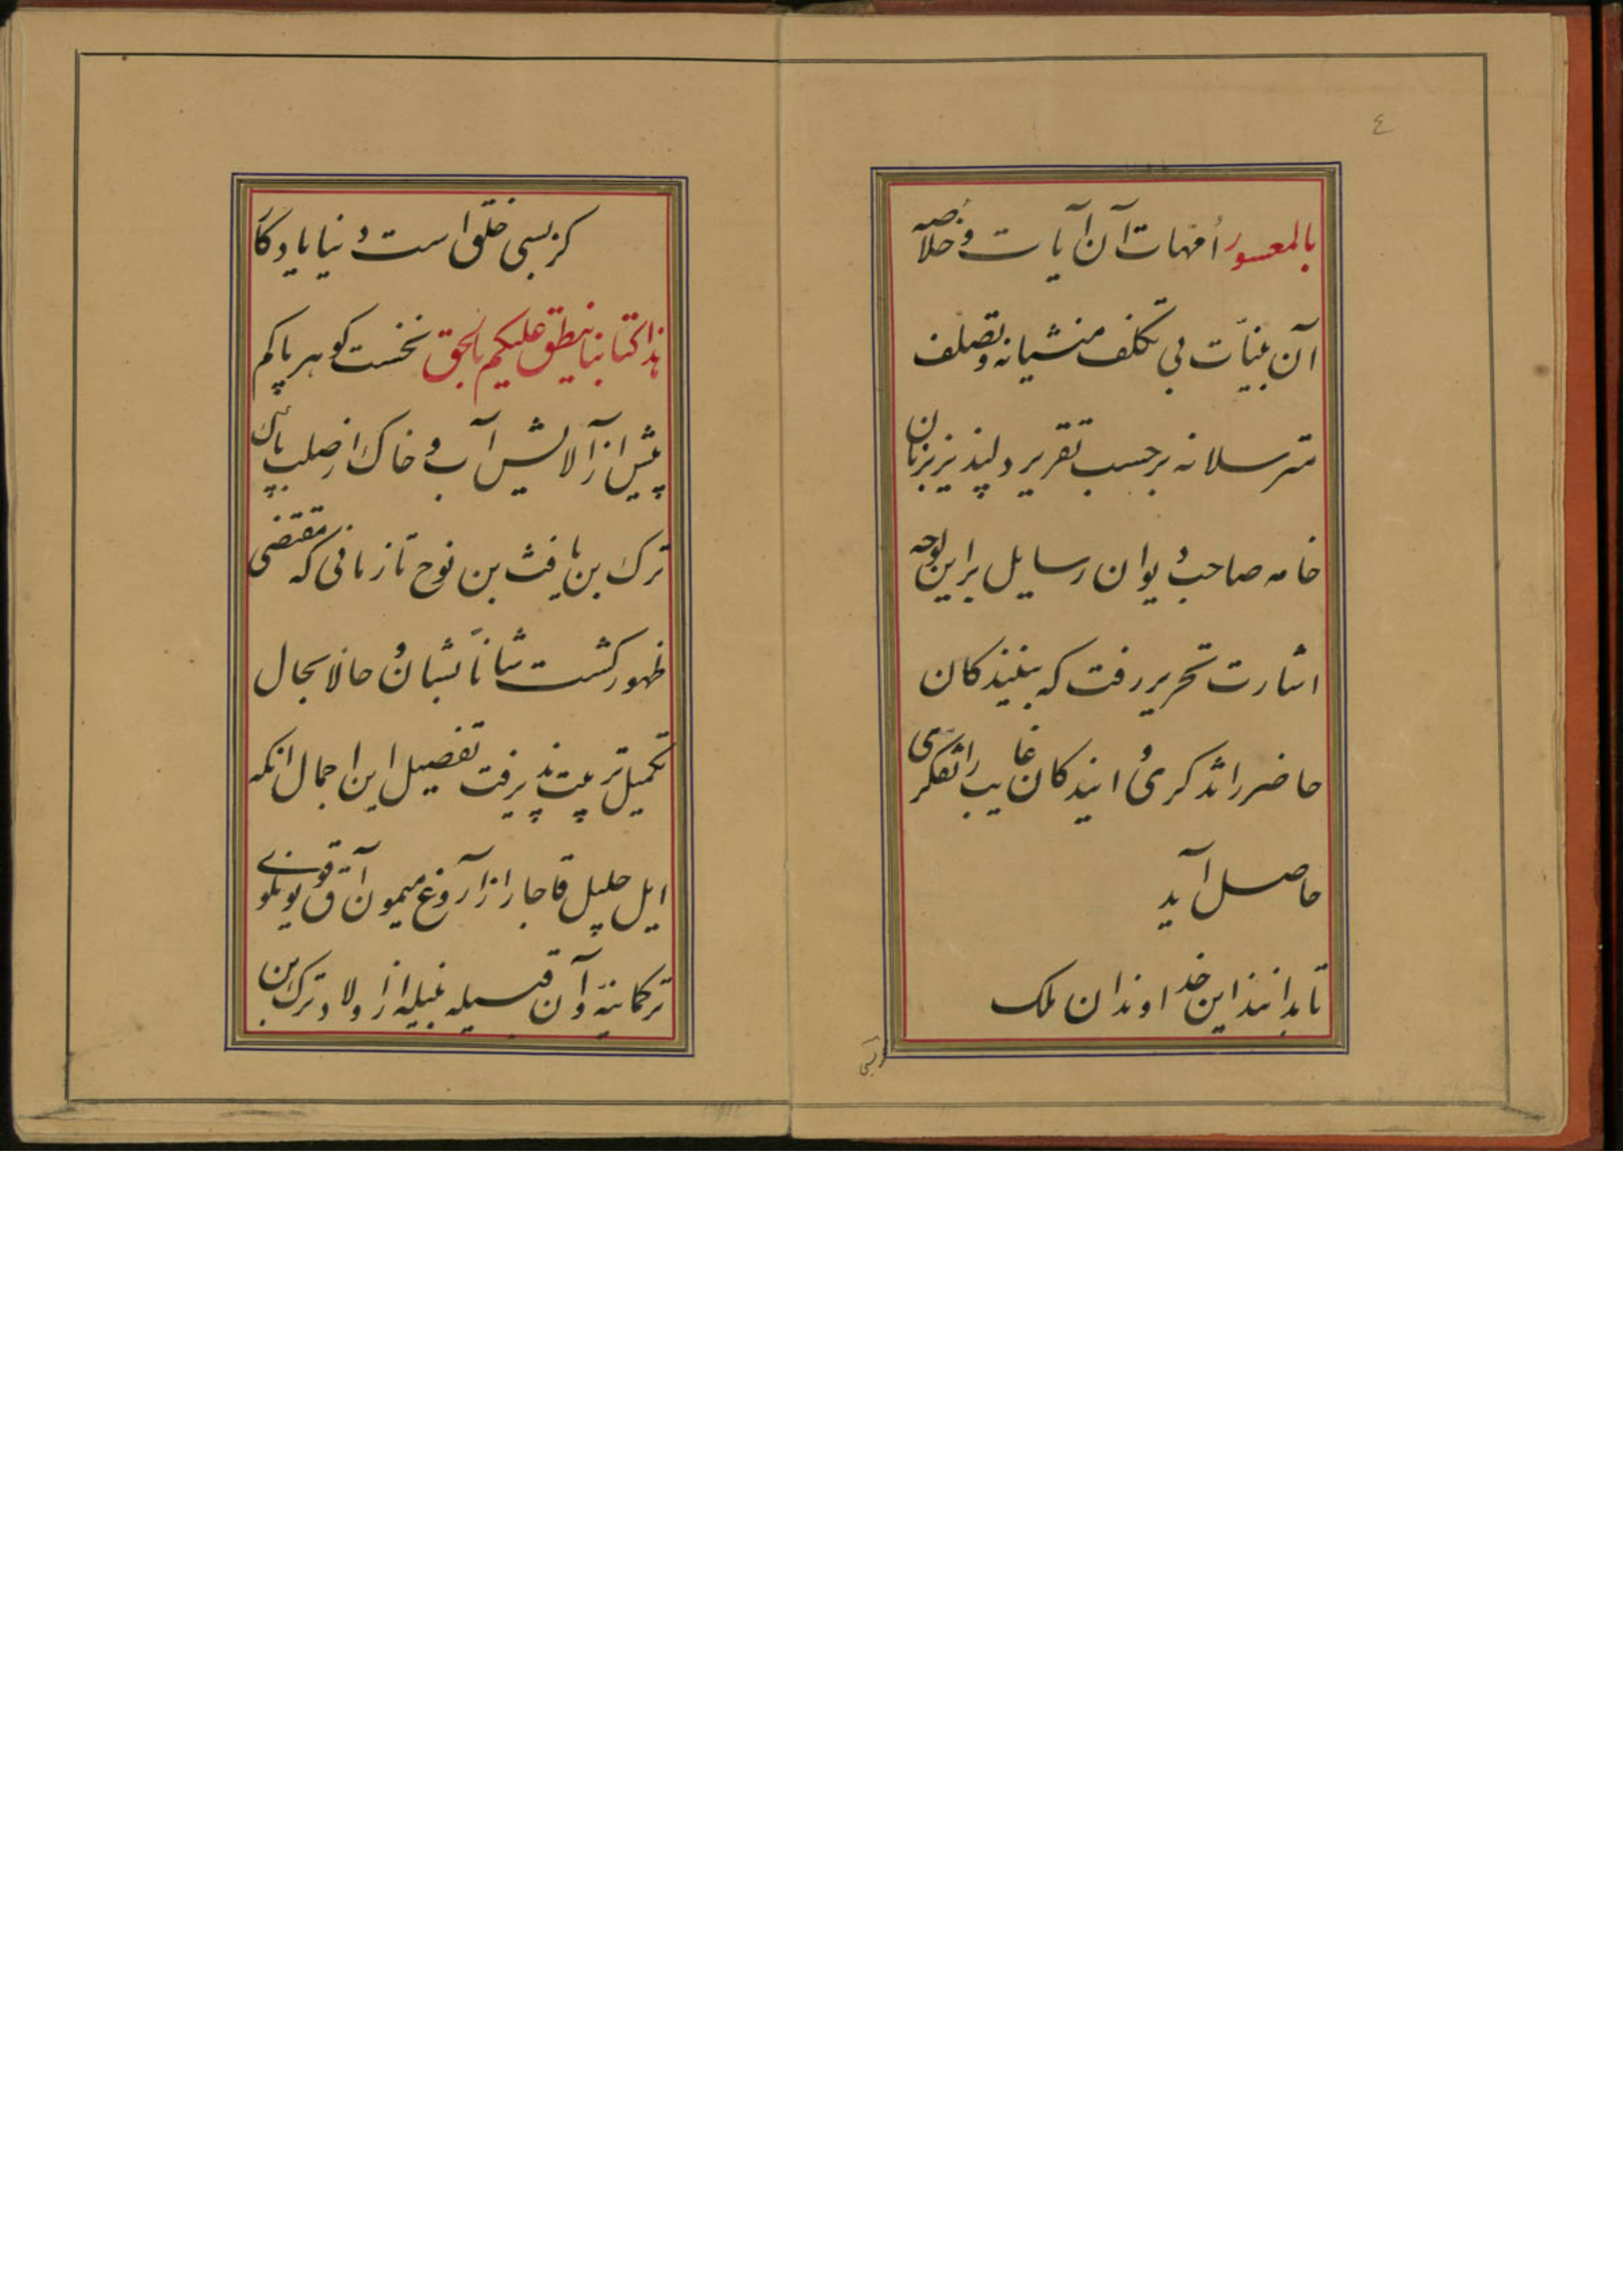 ٤
بالمعسور اُمّهات آن آیات و خلاصهٔ
آن بینّات بی تکلف منشیانه و تصلف
مترسلانه برحسب تقریر دلپذیر بزبان
خامه صاحب دیوان رسایل براین لوحه
اشارت تحریر رفت که بینندکان
حاضر را تذکری و ایندکان غایب را تفکری
حاصل آید
تا بدانند این خداوندان ملک
کز بسی خلق است دنیا یادکار
هذا کتابنا ینطق علیکم بالحق نخست کوهر پاکم
پیش از آلایش آب و خاک از صلب پاک
ترک بن یافث بن نوح تا زمانی که مقتضی
ظهور کشت شاناً بشان و حالا بحال
تکمیل تربیت پذیرفت تفصیل این اجمال انکه
ایل جلیل قاجار از آروغ میمون آق قویونلوی
ترکمانیّه و آن قبیسله نبیله از اولاد ترک بن